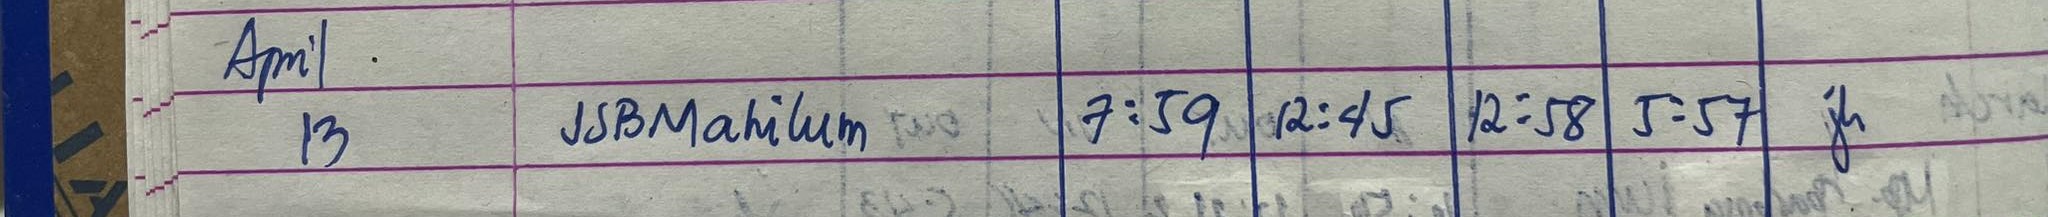 April
13 JSBMahilum 7:59 12:45 12:58 5:57 jh